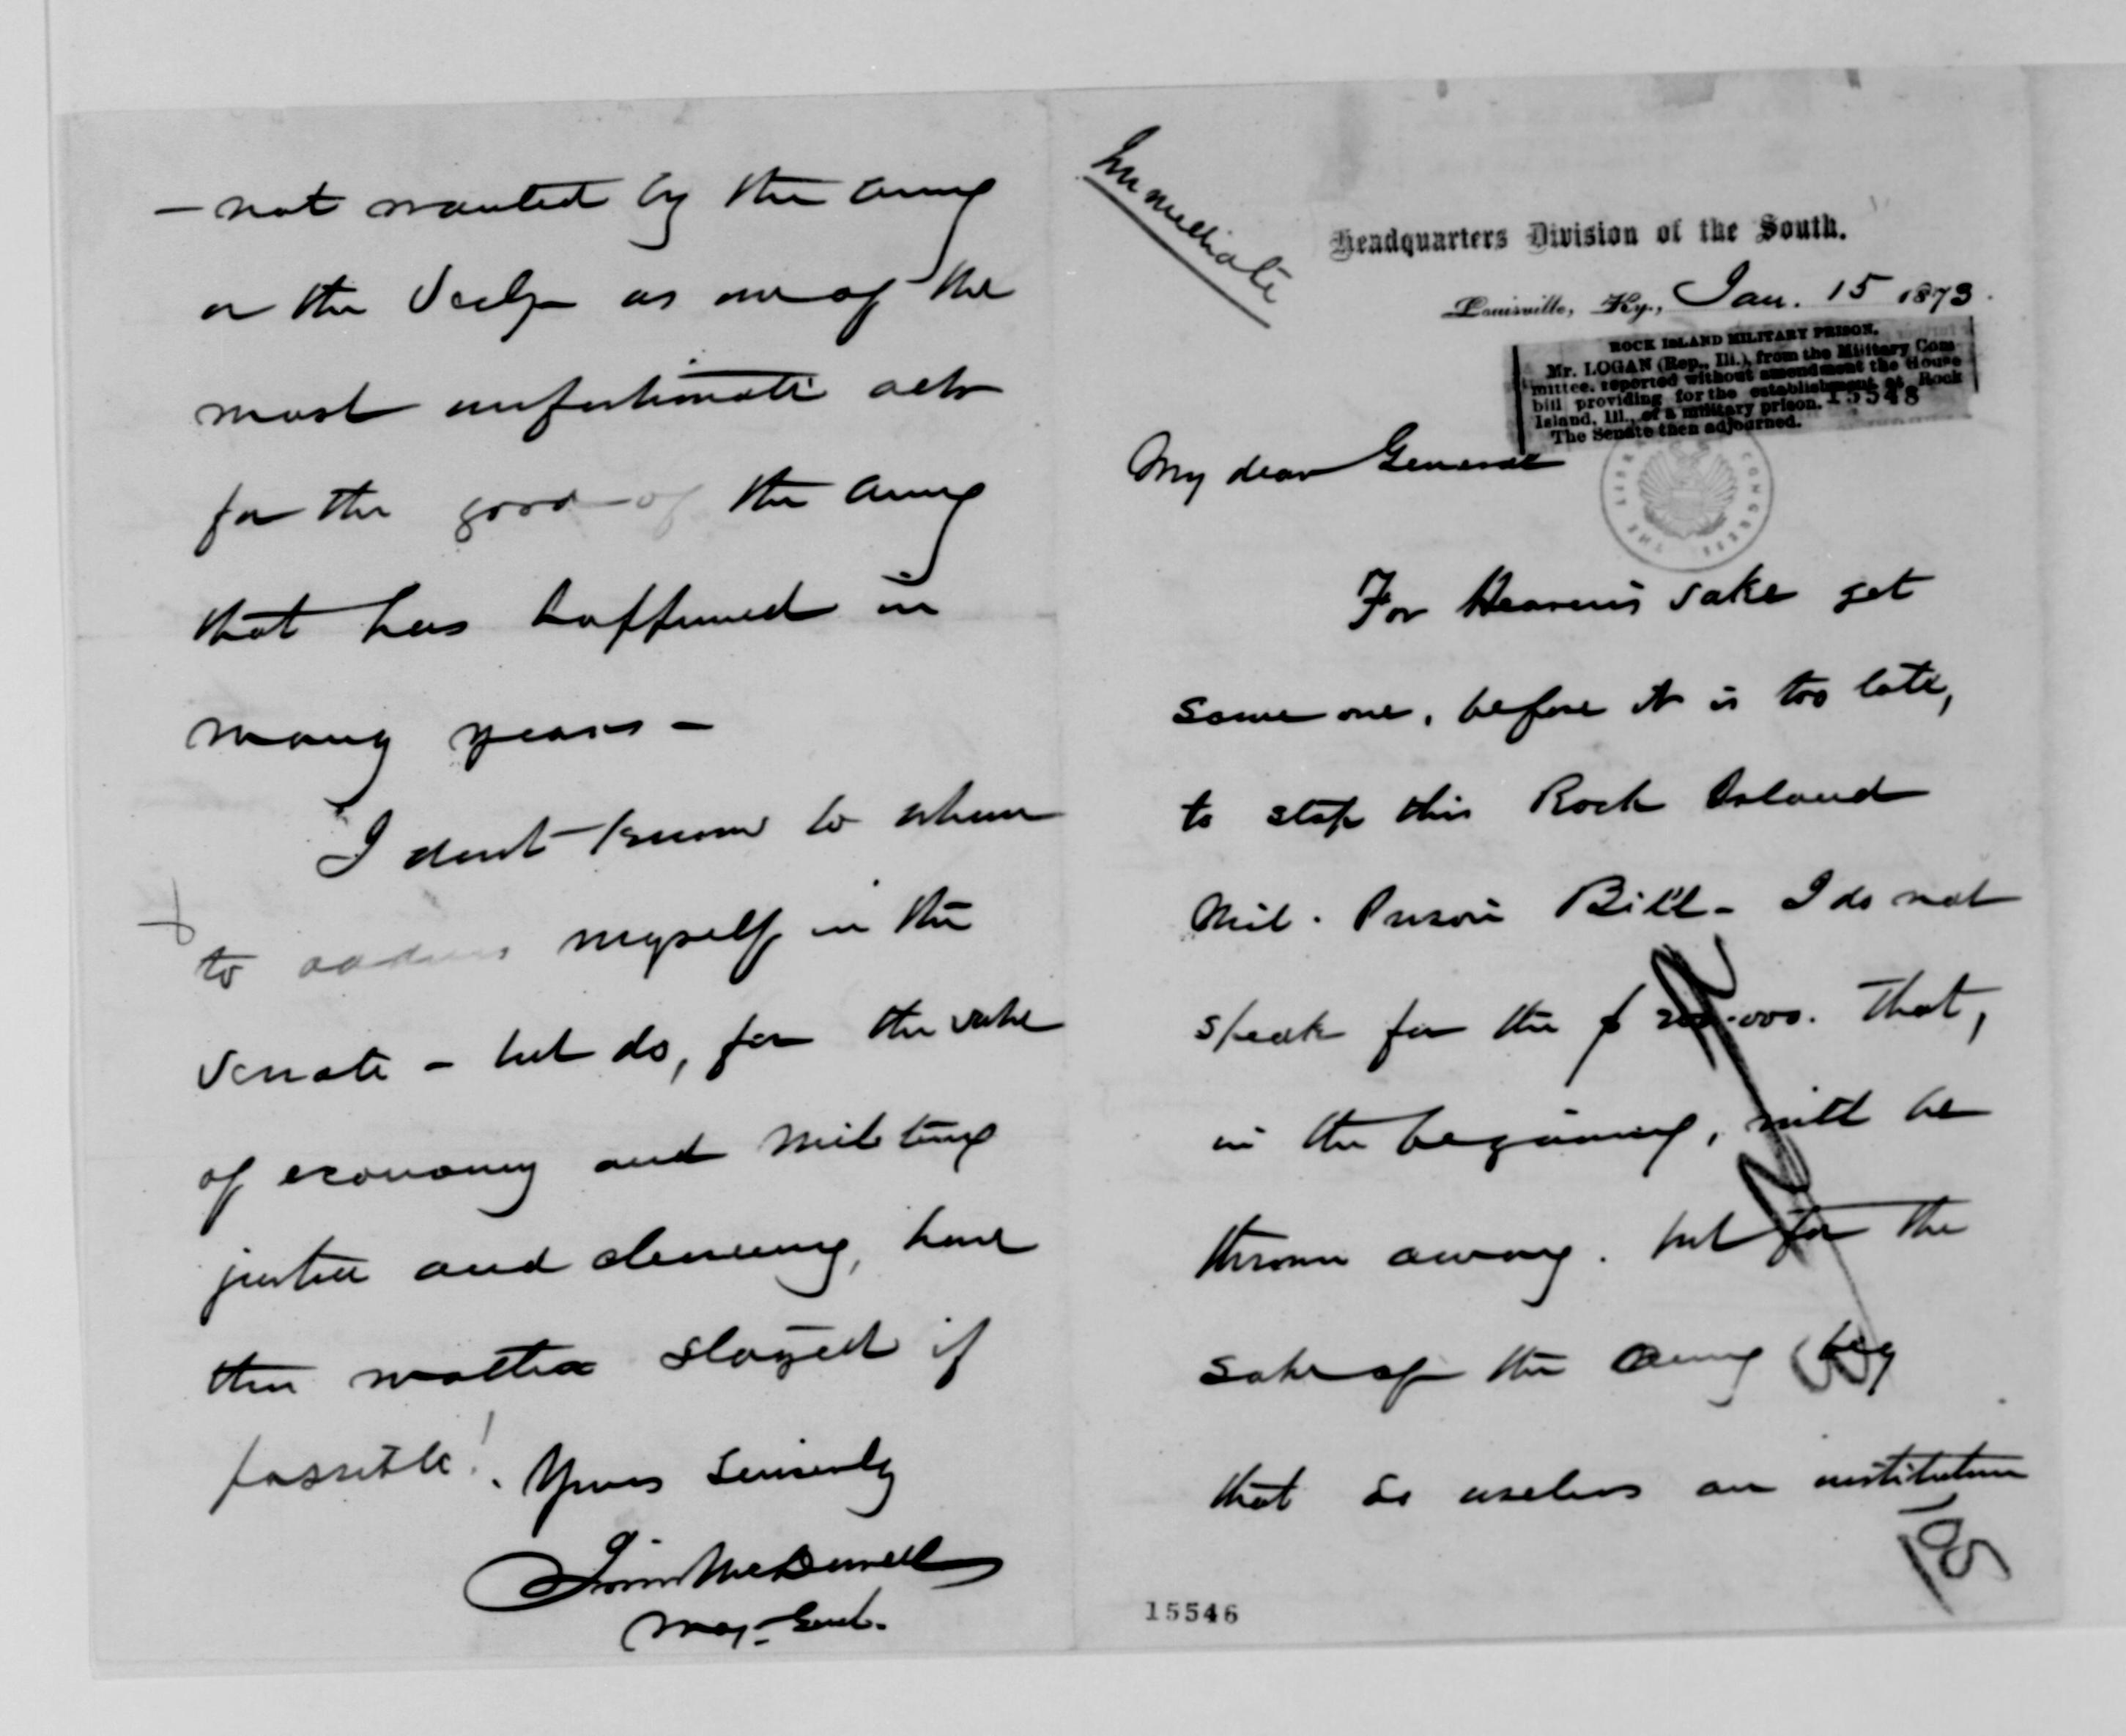 Immediate
Headquarters Division of the South.
Louisville, Ky., Jan. 15 1873.
ROCK ISLAND MILITARY PRISON.
Mr. LOGAN (Rep., Ill.), from the Military Com-
mittee, reported without amendment the House
bill providing for the establishment at Rock
Island, Ill., of a military prison. 15548
The Senate then adjourned.
My dear General
THE LIBRARY CONGRESS
For Heaven's sake get
some one, before it is too late,
to stop this Rock Island
Mil. Prison Bill - I do not
speak for the $ 000. That,
in the beginning, will be
thrown away. but for the
sake of the Army
that so useless an institution
105
15546
- not wanted by the army
or the as one of the
most unfortunate acts
for the good of the army
that has happened in
many years -
I dont know to whom
to address myself in the
Senate - but do, for the sake
of economy and military
justice and clemency, have
this matter stayed if
possible! Yours Sincerely
Irvin McDowell
Maj-Genl.